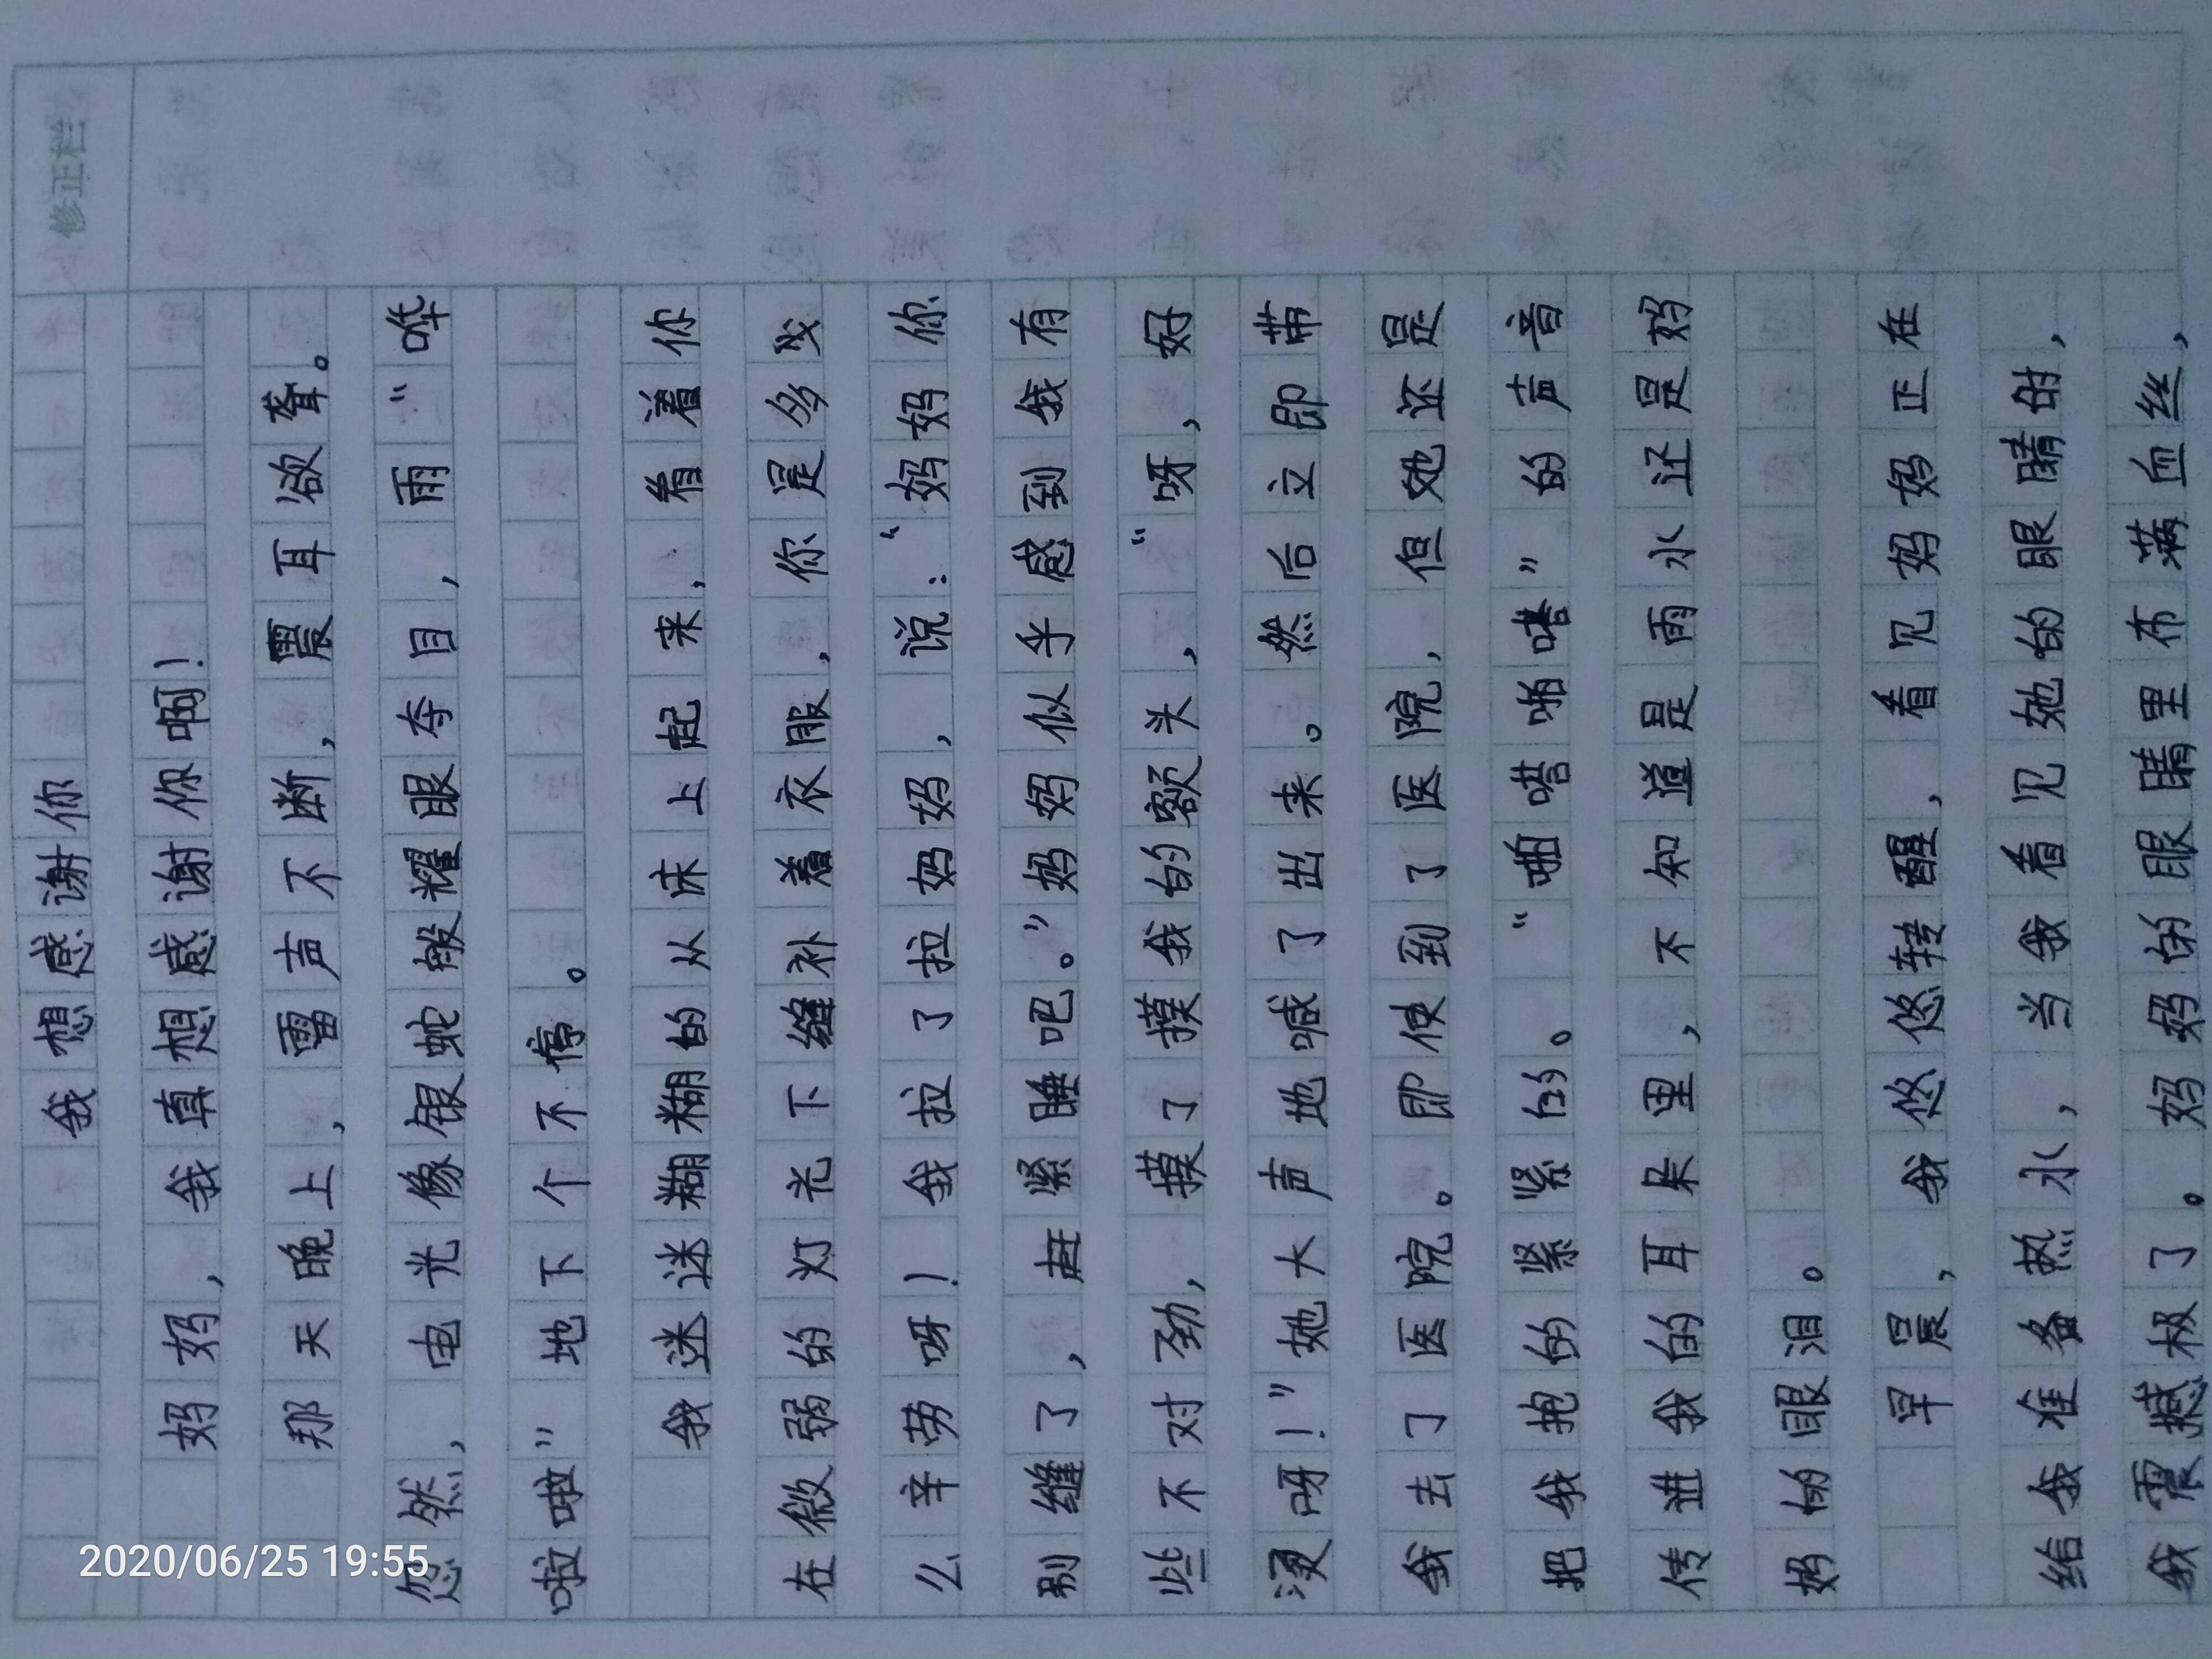 修正栏
我想感谢你
妈妈，我真想感谢你啊！
那天晚上，雷声不断，震耳欲聋。
忽然，电光像银蛇般耀眼夺目，雨“哗
啦啦”地下个不停。
我迷迷糊糊的从床上起来，看着你
在微弱的灯光下缝补着衣服，你是多
么辛劳呀！我拉了拉妈妈，说：“妈妈你
别缝了，赶紧睡吧。”妈妈似乎感到我有
些不对劲，摸了摸我的额头，“呀，好
烫呀！”她大声地喊了出来。然后立即带
我去了医院。即使到了医院，但她还是
把我抱的紧紧的。“啪嗒啪嗒”的声音
传进我的耳朵里，不知道是雨水还是妈
妈的眼泪。
早晨，我悠悠转醒，看见妈妈正在
给我准备热水，当我看见她的眼睛时，
我震撼极了。妈妈的眼睛里布满血丝，
2020/06/25 19:55